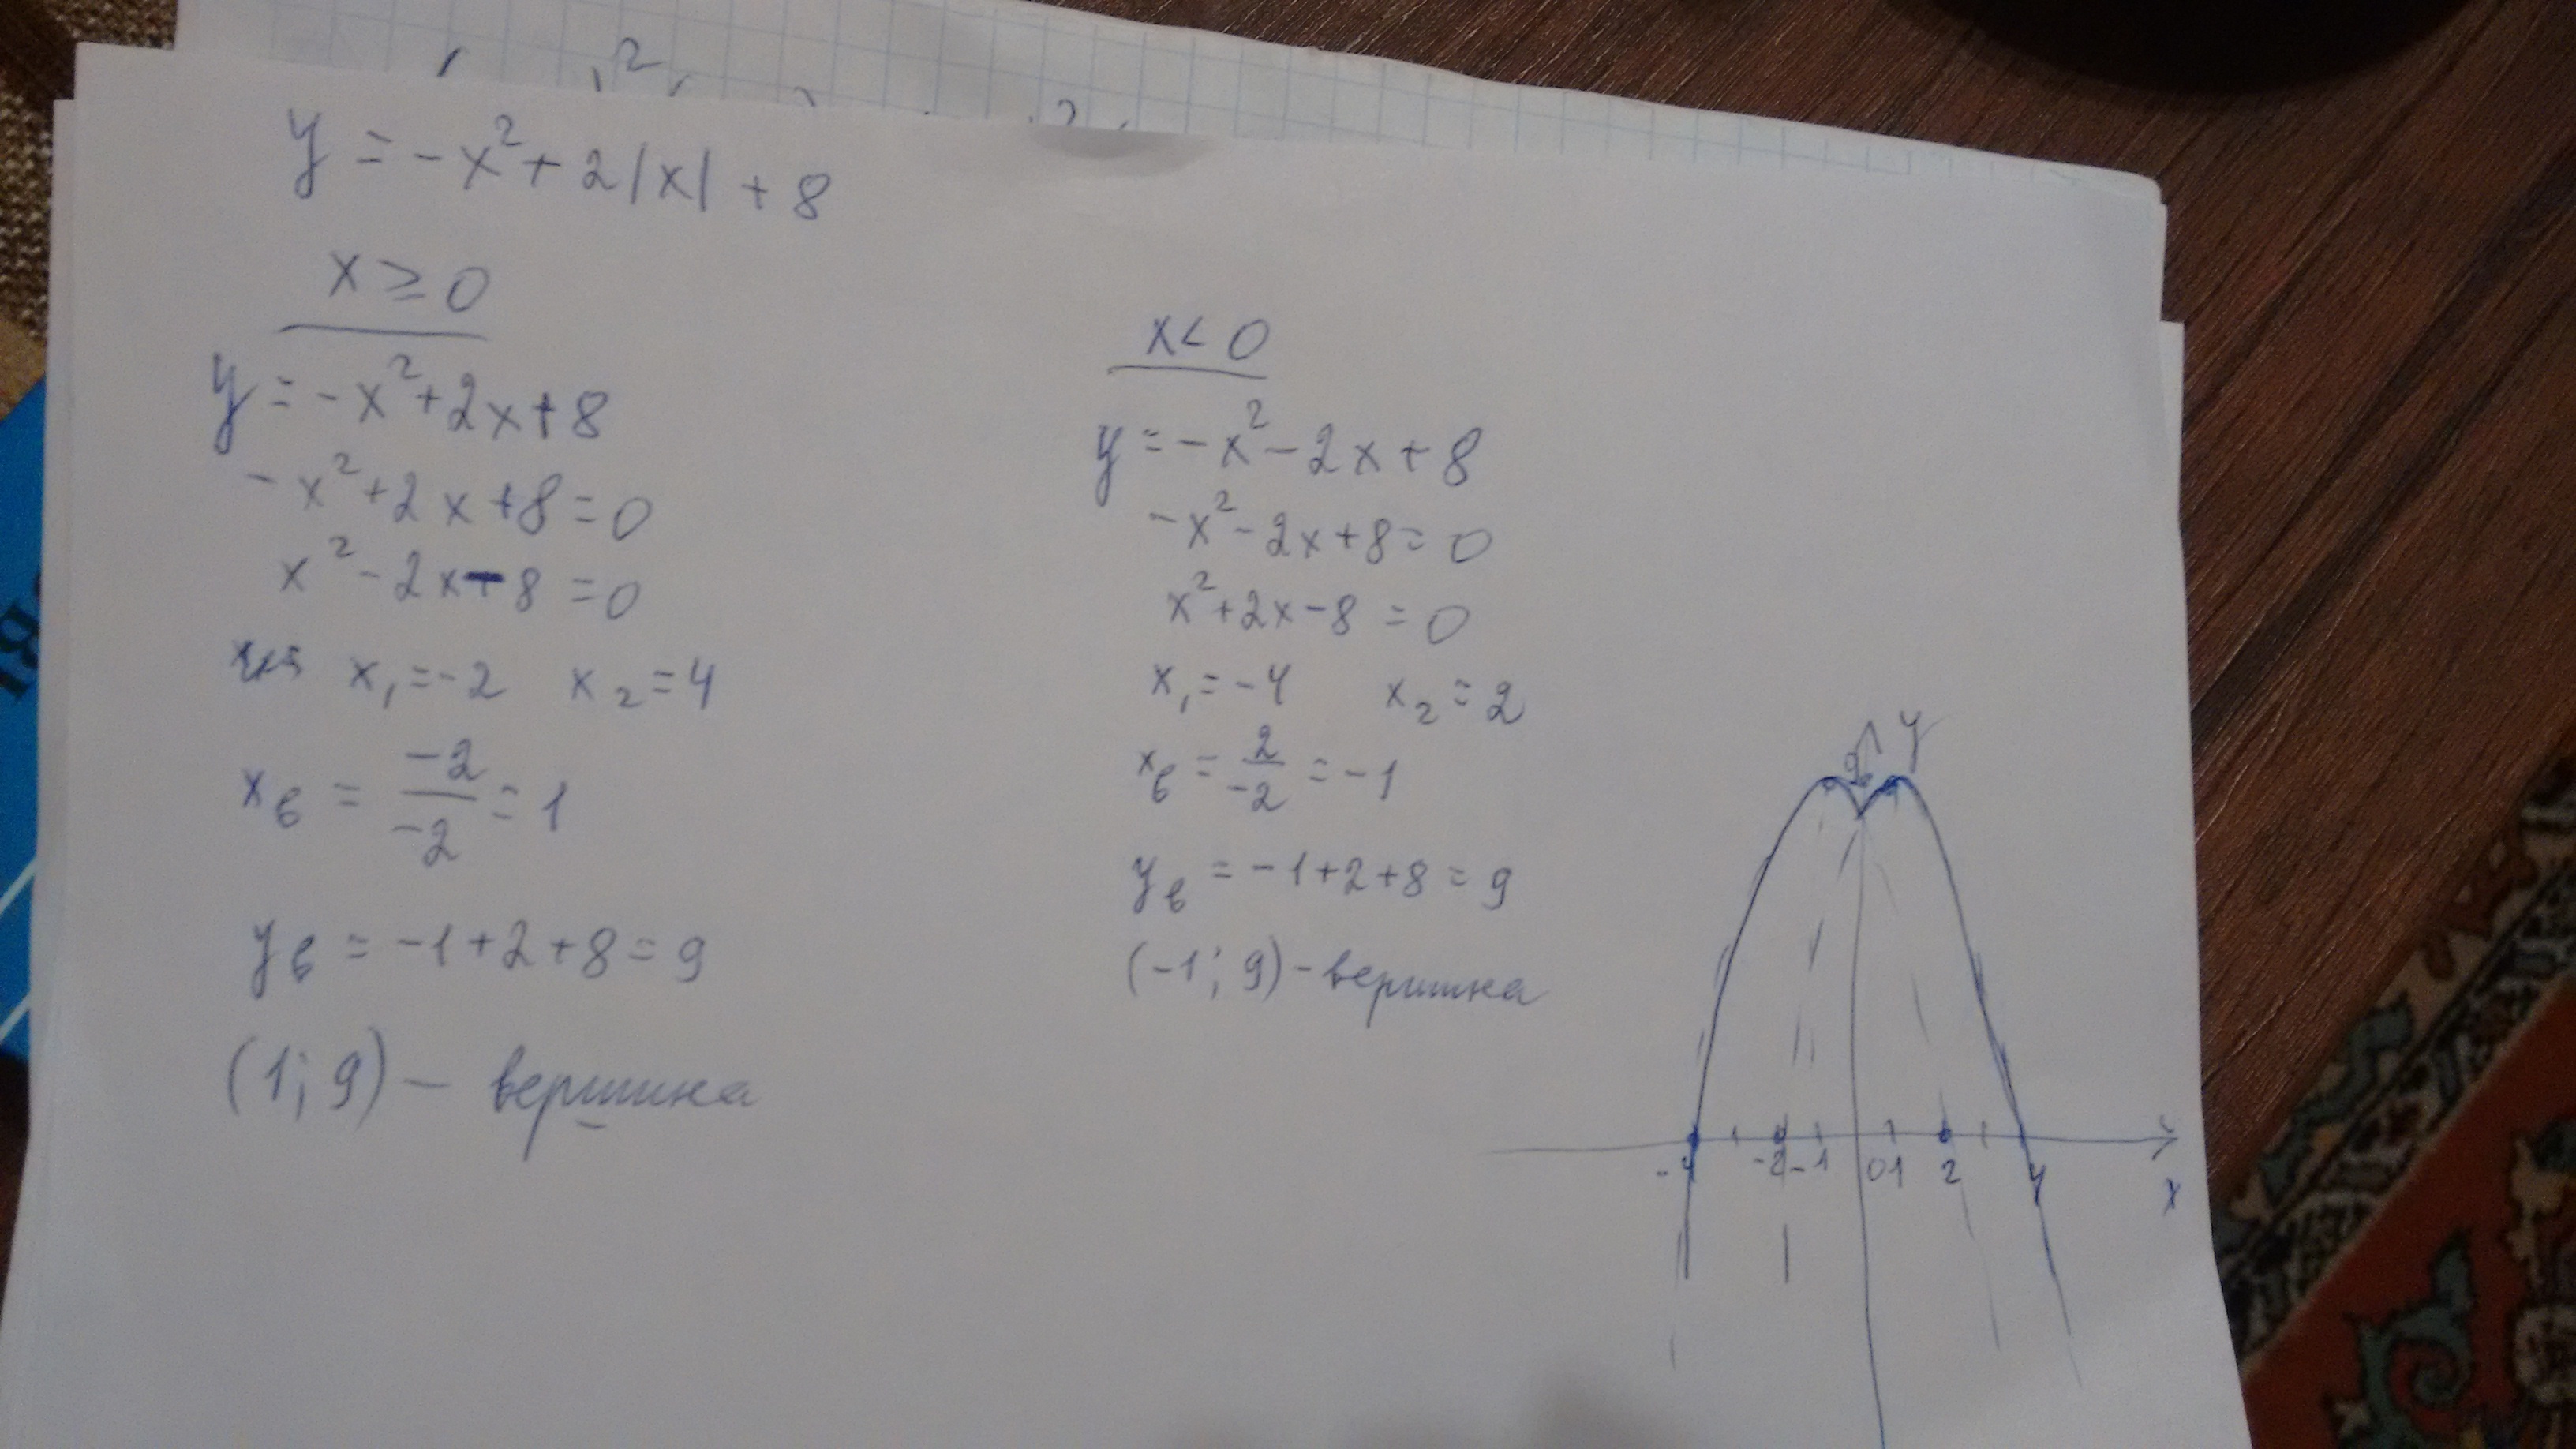 y = -x² + 2|x| + 8
x ≥ 0
y = -x² + 2x + 8
-x² + 2x + 8 = 0
x² - 2x - 8 = 0
x₁ = -2 x₂ = 4
xв = -2/-2 = 1
yв = -1 + 2 + 8 = 9
(1; 9) - вершина
x < 0
y = -x² - 2x + 8
-x² - 2x + 8 = 0
x² + 2x - 8 = 0
x₁ = -4 x₂ = 2
xв = 2/-2 = -1
yв = -1 + 2 + 8 = 9
(-1; 9) - вершина
y
9
-4 -2 -1 0 1 2 4
x